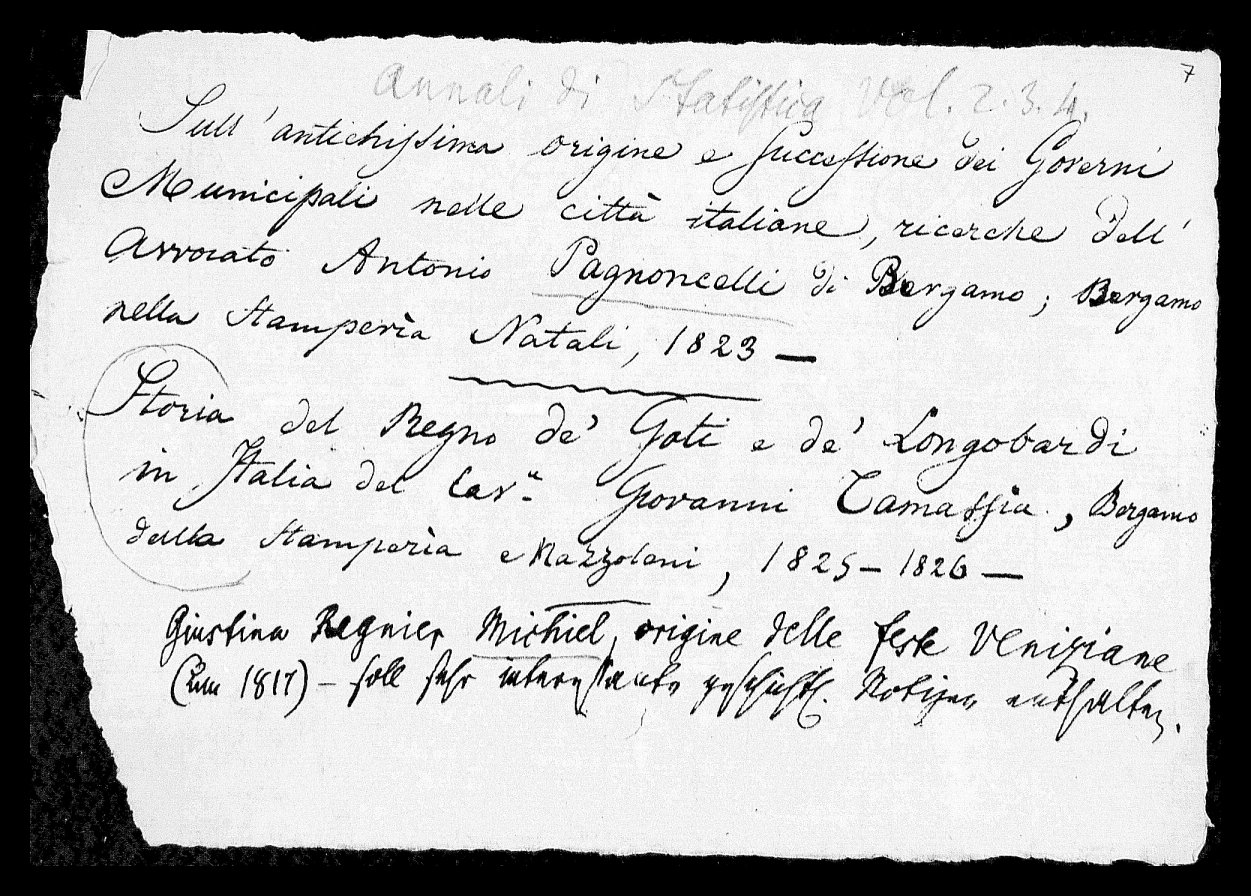 7
Annali di Statistica Vol. 2. 3. 4.
Sull' antichissima origine e successione dei Governi
Municipali nelle città italiane, ricerche dell'
Avvocato Antonio Pagnoncelli di Bergamo; Bergamo
nella Stamperia Natali, 1823 —
Storia del Regno de' Goti e de' Longobardi
in Italia del Cav.e Giovanni Tamassia, Bergamo
dalla Stamperia Mazzoleni, 1825 – 1826 —
Giustina Regnier Michiel, origine delle feste Veniziane
1817) – soll sehr interessante geschichtl. Notizen enthalten.